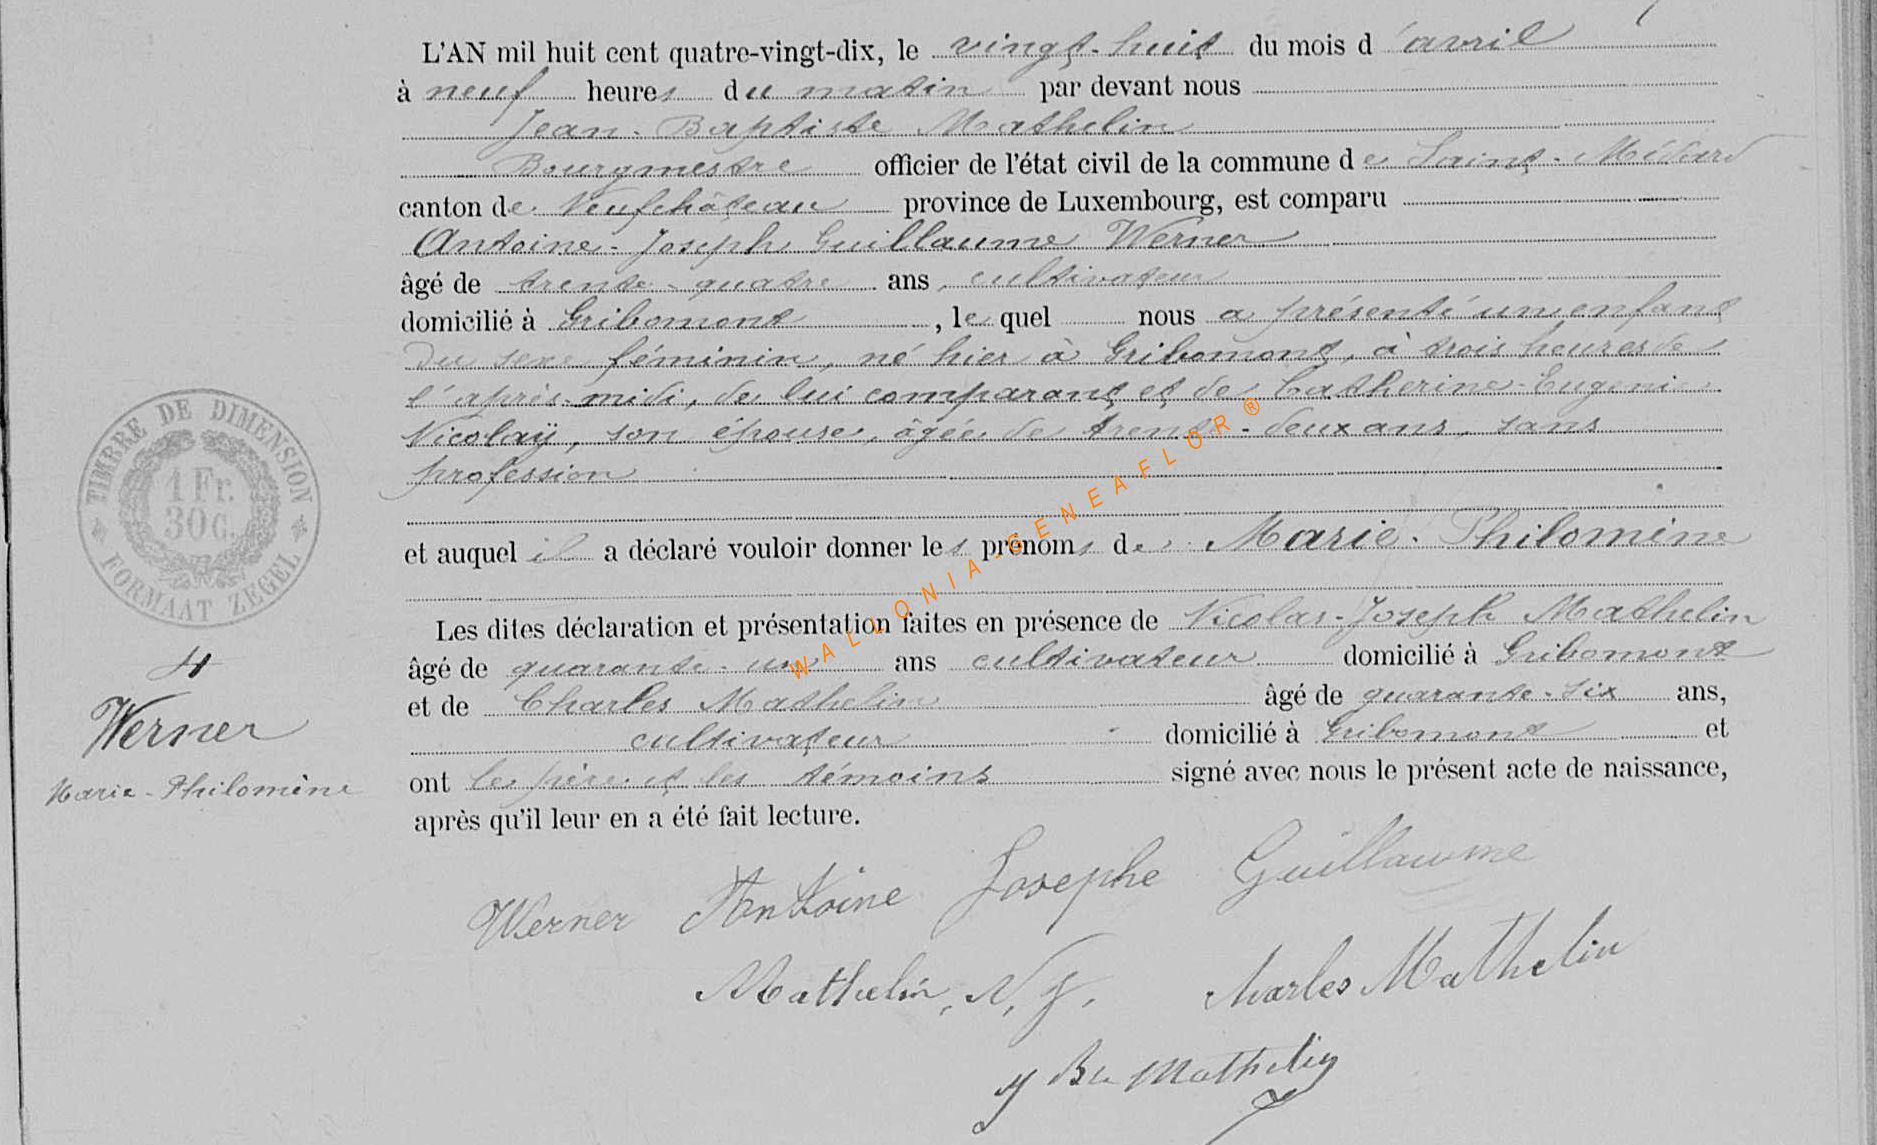 L'AN mil huit cent quatre-vingt-dix, le vingt-huit du mois d'avril
à neuf heures du matin par devant nous
Jean-Baptiste Mathelin
Bourgmestre officier de l'état civil de la commune de Saint-Médard
canton de Neufchâteau province de Luxembourg, est comparu
Antoine-Joseph Guillaume Werner
âgé de trente-quatre ans, cultivateur
domicilié à Gribomont, le quel nous a présenté un enfant
du sexe féminin, né hier à Gribomont, à trois heures de
l'après-midi, de lui comparant et de Catherine-Eugenie
Nicolaÿ, son épouse, âgée de trente-deux ans, sans
profession
et auquel il a déclaré vouloir donner les prénoms de Marie-Philomène
Les dites déclaration et présentation faites en présence de Nicolas-Joseph Mathelin
âgé de quarante-un ans cultivateur domicilié à Gribomont
et de Charles Mathelin âgé de quarante-six ans,
cultivateur domicilié à Gribomont et
ont le père et les témoins signé avec nous le présent acte de naissance,
après qu'il leur en a été fait lecture.
TIMBRE DE DIMENSION
1 Fr.
30 C.
FORMAAT ZEGEL
4
Werner
Marie-Philomène
Werner Antoine Josephe Guillaume
Mathelin, N, J. Charles Mathelin
J Bte Mathelin
WALLONIA-GENEAFLOR®